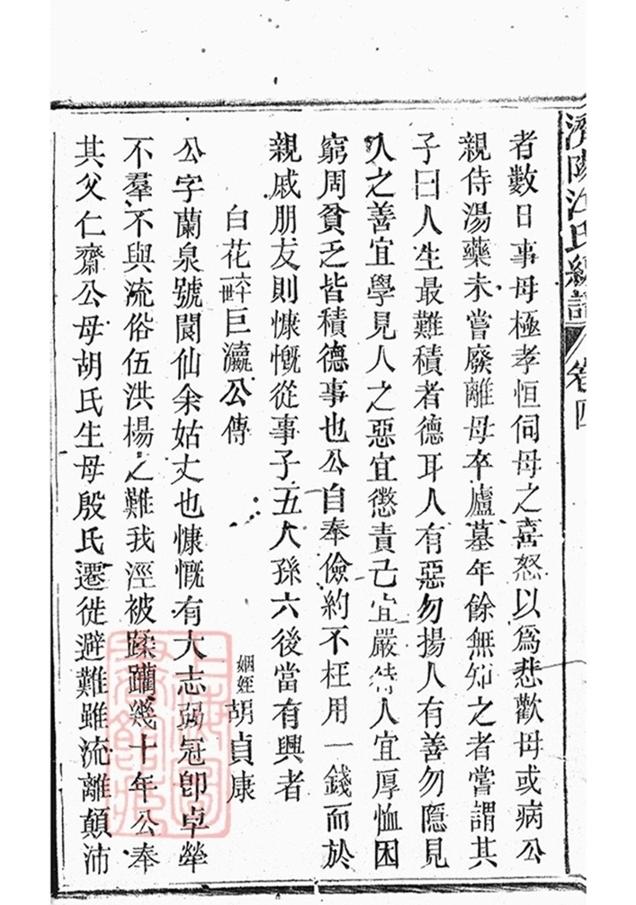 濟陽江氏總譜 卷四
者數日事母極孝恒伺母之喜怒以爲悲歡母或病公
親侍湯藥未嘗廢離母卒廬墓年餘無知之者嘗謂其
子曰人生最難積者德耳人有惡勿揚人有善勿隱見
人之善宜學見人之惡宜懲責己宜嚴待人宜厚恤困
窮周貧乏皆積德事也公自奉儉約不枉用一錢而於
親戚朋友則慷慨從事子五人孫六後當有興者
白花六十世巨瀛公傳
姻姪胡貞康
公字蘭泉號閬仙余姑丈也慷慨有大志弱冠卽卓犖
不羣不與流俗伍洪楊之難我涇被蹂躪幾十年公奉
其父仁齋公母胡氏生母殷氏遷徙避難雖流離顛沛